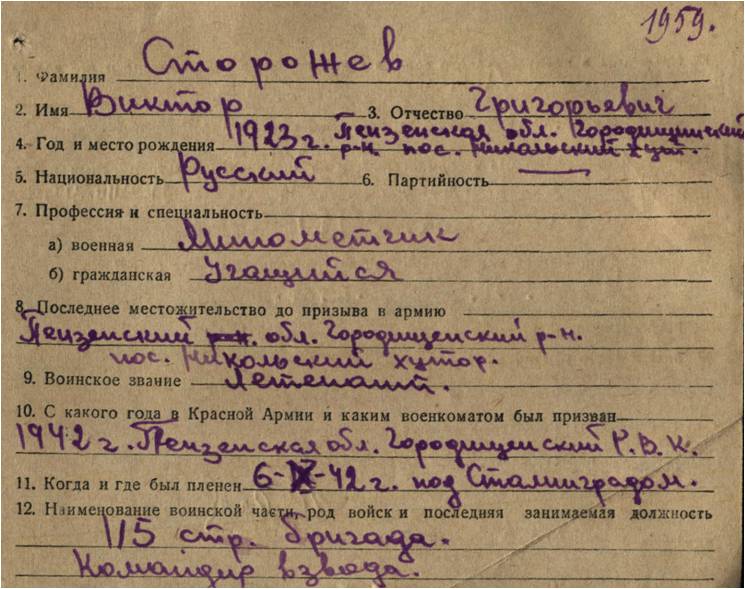 1959.
1. Фамилия Сторожев
2. Имя Виктор 3. Отчество Григорьевич
4. Год и место рождения 1923 г. Пензенская обл. Городищинский
р-н. пос. Никольский хут.
5. Национальность Русский 6. Партийность —
7. Профессия и специальность
а) военная Минометчик
б) гражданская Учащийся
8. Последнее местожительство до призыва в армию
Пензенский р-н. обл. Городищенский р-н.
пос. Никольский хутор.
9. Воинское звание Летенант.
10. С какого года в Красной Армии и каким военкоматом был призван
1942 г. Пензенская обл. Городищенский Р.В.К.
11. Когда и где был пленен 6- -42 г. под Сталинградом.
12. Наименование воинской части, род войск и последняя занимаемая должность
115 стр. бригада.
Командир взвода.